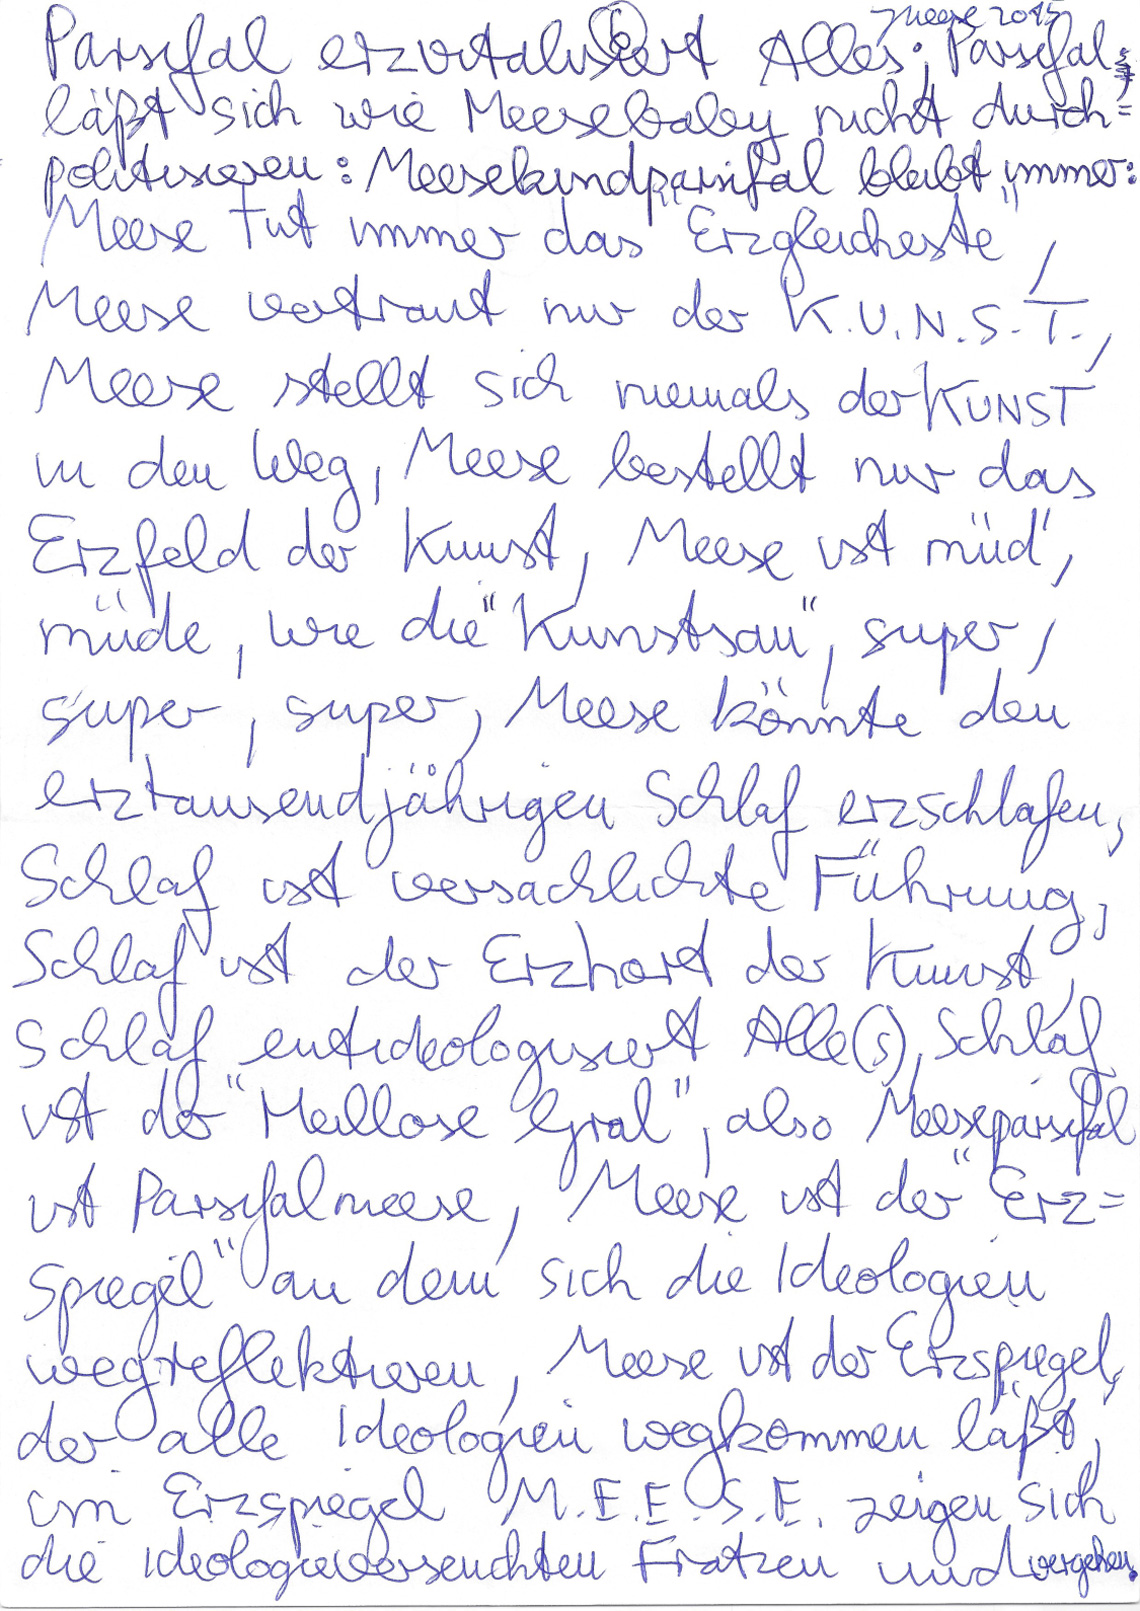 JMeese 2015
Parsifal erzvitalisiert Alles: Parsifal
läßt sich wie Meesebaby nicht durch=
politisieren: Meesekindparsifal bleibt immer:
Meese tut immer das "Erzgleicheste",
Meese vertraut nur der K.U.N.S.T.,
Meese stellt sich niemals der KUNST
in den Weg, Meese bestellt nur das
Erzfeld der Kunst, Meese ist müd',
müde, wie die "Kunstsau", super,
super, super, Meese könnte den
erztausendjährigen Schlaf erzschlafen,
Schlaf ist versachlichte Führung,
Schlaf ist der Erzhort der Kunst,
Schlaf entideologisiert Alle(s), Schlaf
ist der "Heillose Gral", also Meeseparsifal
ist Parsifalmeese, Meese ist der "Erz=
spiegel" an dem sich die Ideologien
wegreflektieren, Meese ist der Erzspiegel,
der alle Ideologien wegkommen läßt,
im Erzspiegel M.E.E.S.E. zeigen sich
die ideologieverseuchten Fratzen und vergehen.